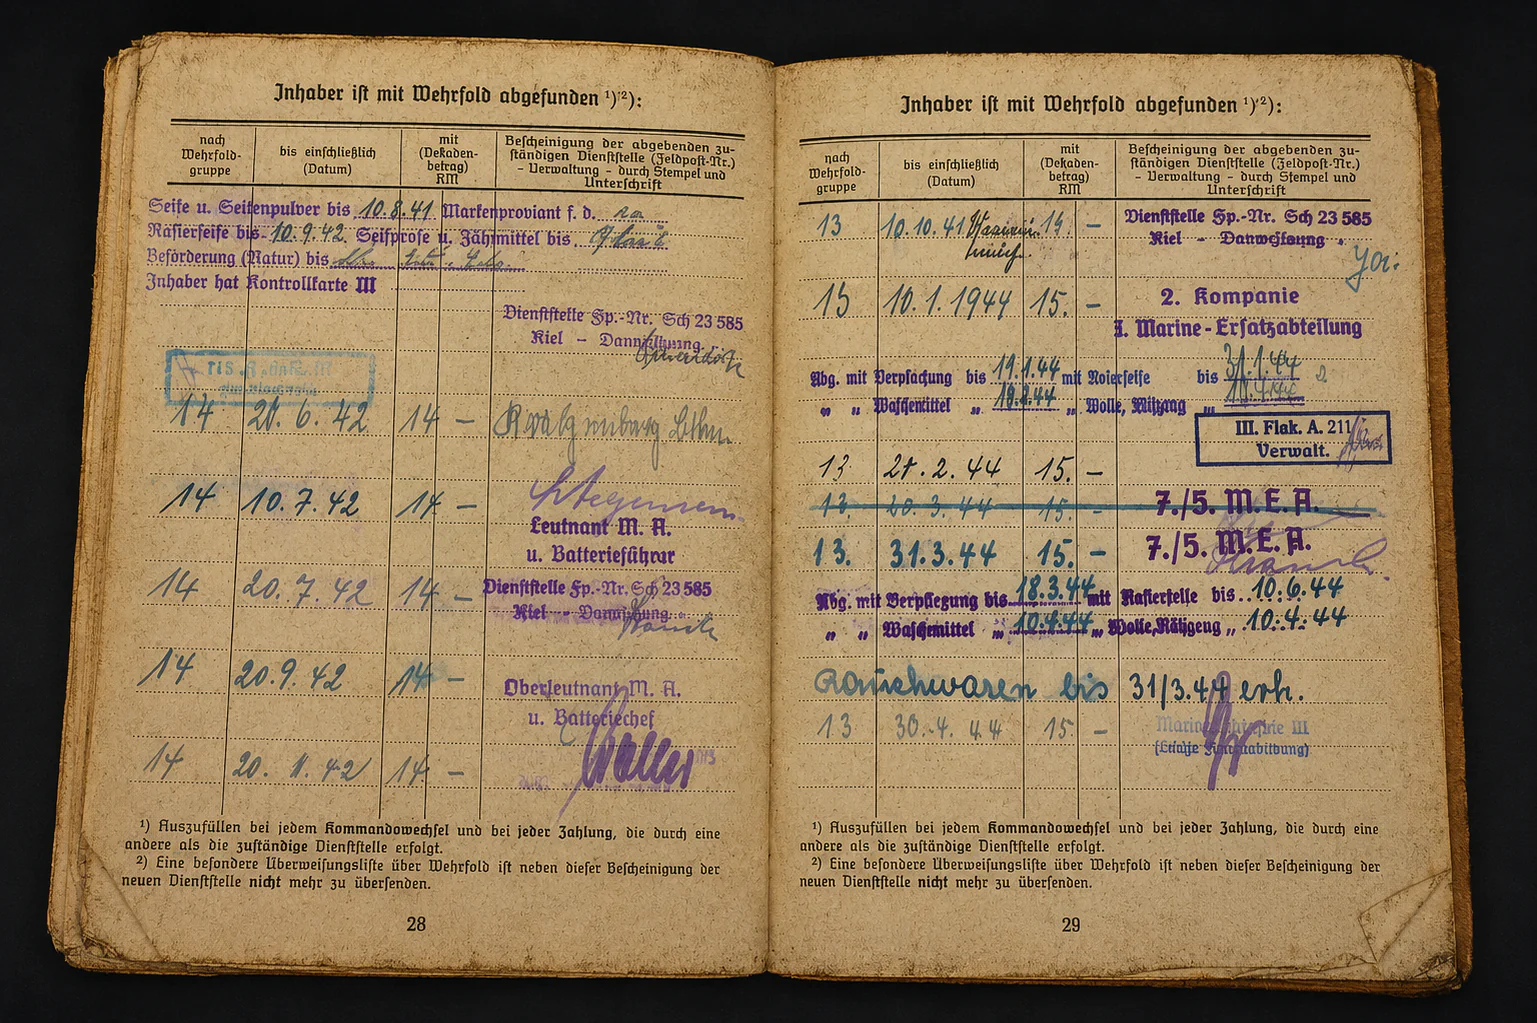 Inhaber ist mit Wehrfold abgefunden ¹)'²):
nach Wehrfold-gruppe
bis einschließlich (Datum)
mit (Dekaden-betrag) RM
Bescheinigung der abgebenden zu-
ständigen Dienststelle (Feldpost-Nr.)
- Verwaltung - durch Stempel und
Unterschrift
Seife u. Seifenpulver bis 10.8.41 Markenproviant f. d.
Rasierseife bis 10.9.42. Seifprose u. Zähmittel bis
Beförderung (Natur) bis
Inhaber hat Kontrollkarte III
Dienststelle Fp.-Nr. Sch 23 585
Kiel -
14 21. 6. 42 14 -
14 10. 7. 42 14 -
Leutnant M. A.
u. Batterieführer
14 20. 7. 42 14 - Dienststelle Fp.-Nr. Sch 23 585
Kiel -
14 20. 9. 42 14 - Oberleutnant M. A.
u. Batteriechef
14 20. 11. 42 14 -
¹) Auszufüllen bei jedem Kommandowechsel und bei jeder Zahlung, die durch eine
andere als die zuständige Dienststelle erfolgt.
²) Eine besondere Überweisungsliste über Wehrfold ist neben dieser Bescheinigung der
neuen Dienststelle nicht mehr zu übersenden.
28
Inhaber ist mit Wehrfold abgefunden ¹)'²):
nach Wehrfold-gruppe
bis einschließlich (Datum)
mit (Dekaden-betrag) RM
Bescheinigung der abgebenden zu-
ständigen Dienststelle (Feldpost-Nr.)
- Verwaltung - durch Stempel und
Unterschrift
13 10. 10. 41 14. - Dienststelle Fp.-Nr. Sch 23 585
Kiel -
15 10. 1. 1944 15. - 2. Kompanie
I. Marine-Ersatzabteilung
Abg. mit Verpfachung bis 19.1.44 mit bis 31.1.44
" " Waschmittel " 18.2.44 " Wolle,
III. Flak. A. 211
Verwalt.
13 21. 2. 44 15. -
13. 20. 3. 44 15. - 7./5. M.E.A.
13. 31.3. 44 15. - 7./5. M.E.A.
Abg. mit Verpflegung bis 18.3.44 mit bis 10.6.44
" " Waschmittel " 10.4.44 " Wolle, " 10.4.44
Rauchwaren bis 31/3.44 erh.
13 30. 4. 44 15. - III
¹) Auszufüllen bei jedem Kommandowechsel und bei jeder Zahlung, die durch eine
andere als die zuständige Dienststelle erfolgt.
²) Eine besondere Überweisungsliste über Wehrfold ist neben dieser Bescheinigung der
neuen Dienststelle nicht mehr zu übersenden.
29